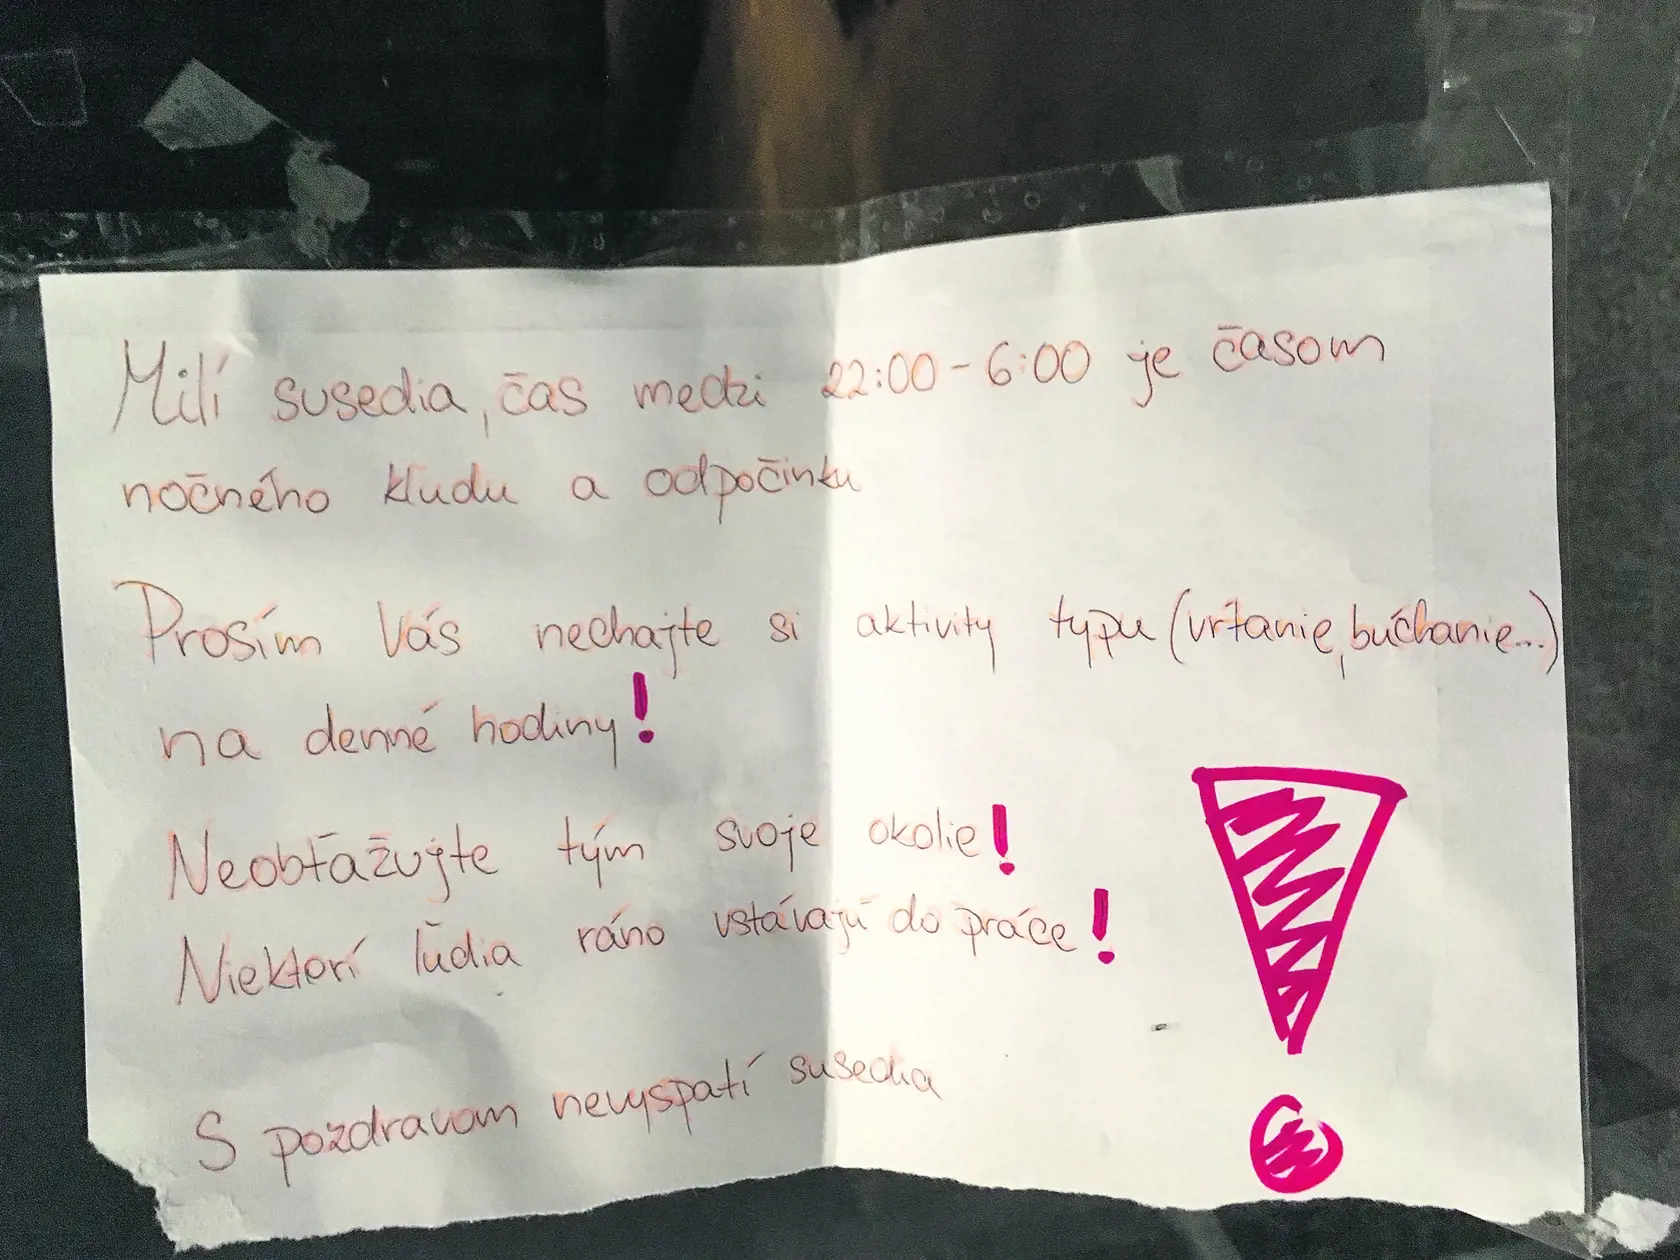 Milí susedia, čas medzi 22:00 - 6:00 je časom
nočného kľudu a odpočinku
Prosím Vás nechajte si aktivity typu (vŕtanie, búchanie...)
na denné hodiny!
Neobťažujte tým svoje okolie!
Niektorí ľudia ráno vstávajú do práce!
S pozdravom nevyspatí susedia